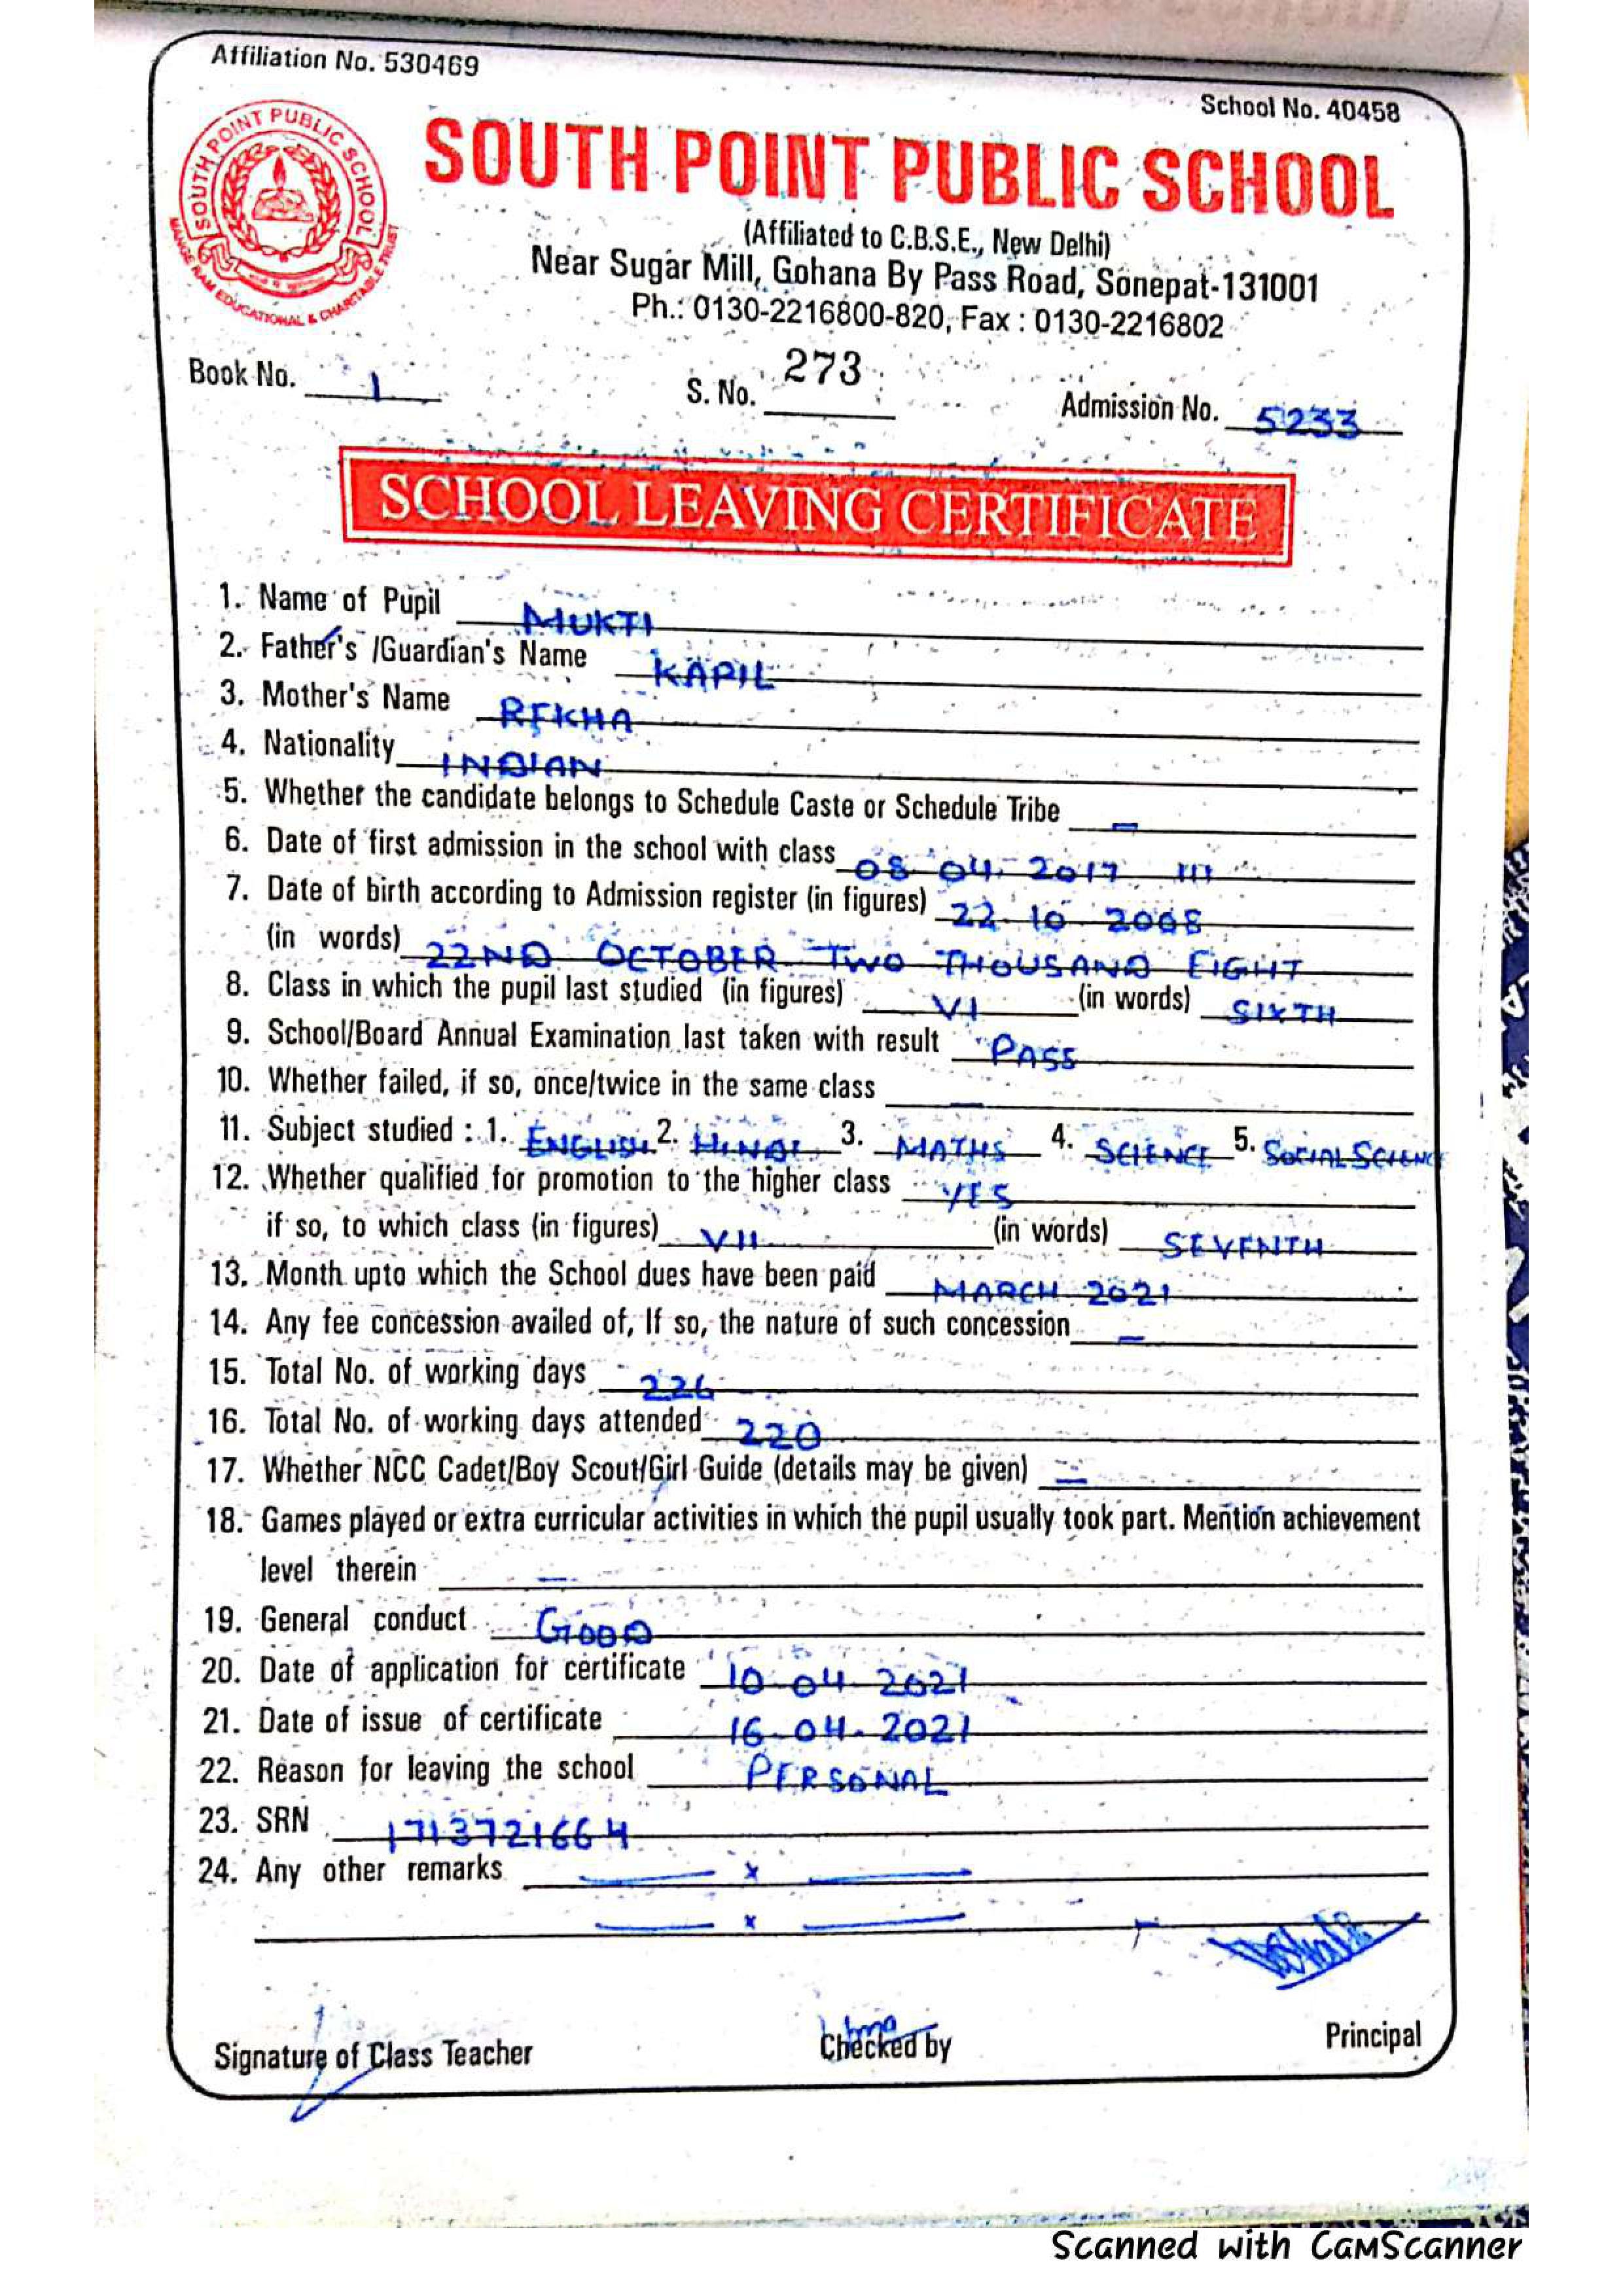 Affiliation No. 530469
School No. 40458
SOUTH POINT PUBLIC SCHOOL
MANGE RAM EDUCATIONAL & CHARITABLE TRUST
SOUTH POINT PUBLIC SCHOOL
(Affiliated to C.B.S.E., New Delhi)
Near Sugar Mill, Gohana By Pass Road, Sonepat-131001
Ph.: 0130-2216800-820, Fax : 0130-2216802
Book No. 1 S. No. 273 Admission No. 5233
SCHOOL LEAVING CERTIFICATE
1. Name of Pupil MUKTI
2. Father's /Guardian's Name KAPIL
3. Mother's Name REKHA
4. Nationality INDIAN
5. Whether the candidate belongs to Schedule Caste or Schedule Tribe —
6. Date of first admission in the school with class 08-04-2017 III
7. Date of birth according to Admission register (in figures) 22-10-2008
(in words) 22ND OCTOBER TWO THOUSAND EIGHT
8. Class in which the pupil last studied (in figures) VI (in words) SIXTH
9. School/Board Annual Examination last taken with result PASS
10. Whether failed, if so, once/twice in the same class —
11. Subject studied : 1. ENGLISH 2. HINDI 3. MATHS 4. SCIENCE 5. SOCIAL SCIENCE
12. Whether qualified for promotion to the higher class YES
if so, to which class (in figures) VII (in words) SEVENTH
13. Month upto which the School dues have been paid MARCH 2021
14. Any fee concession availed of, If so, the nature of such concession —
15. Total No. of working days 226
16. Total No. of working days attended 220
17. Whether NCC Cadet/Boy Scout/Girl Guide (details may be given) —
18. Games played or extra curricular activities in which the pupil usually took part. Mention achievement
level therein —
19. General conduct GOOD
20. Date of application for certificate 10-04-2021
21. Date of issue of certificate 16-04-2021
22. Reason for leaving the school PERSONAL
23. SRN 1713721664
24. Any other remarks — x —
— x —
Signature of Class Teacher Checked by Principal
Scanned with CamScanner